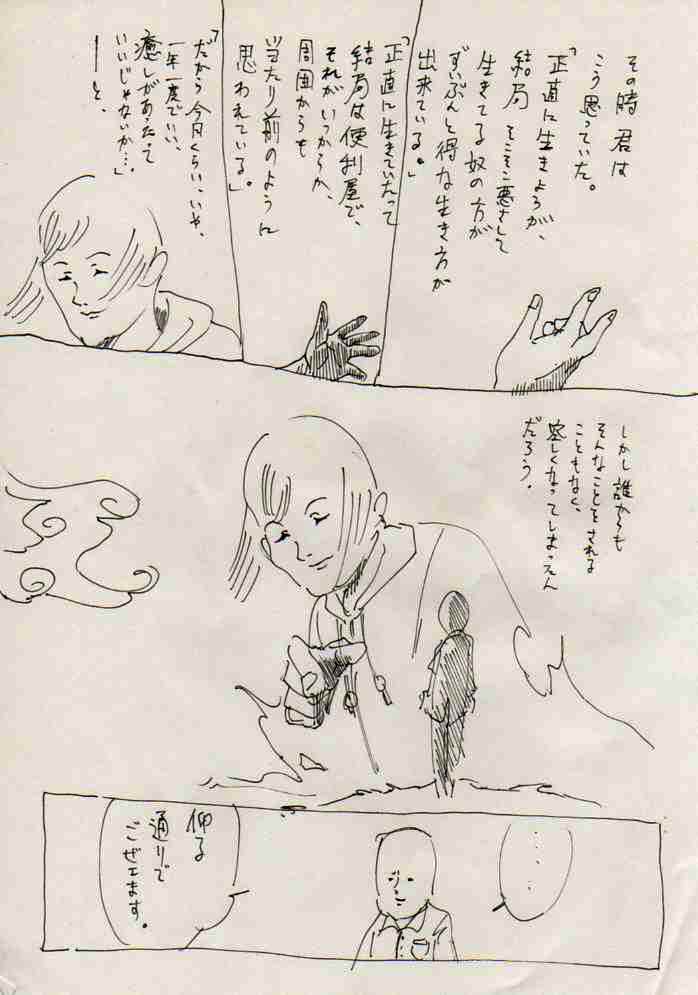 その時君は
こう思っていた。
「正直に生きようが、
結局 そこそこ悪さして
生きてる奴の方が
ずいぶんと得な生き方が
出来ている。」
「正直に生きていたって
結局は便利屋で、
それがいつからか、
周囲からも
当たり前のように
思われている」。
「だから今日くらい、いや、
一年一度でいい、
癒しがあったって
いいじゃないか…」
――と、
しかし誰からも
そんなことをされる
こともなく、
空しくなってしまったん
だろう。
・・・・
仰る
通りで
ごぜエます。